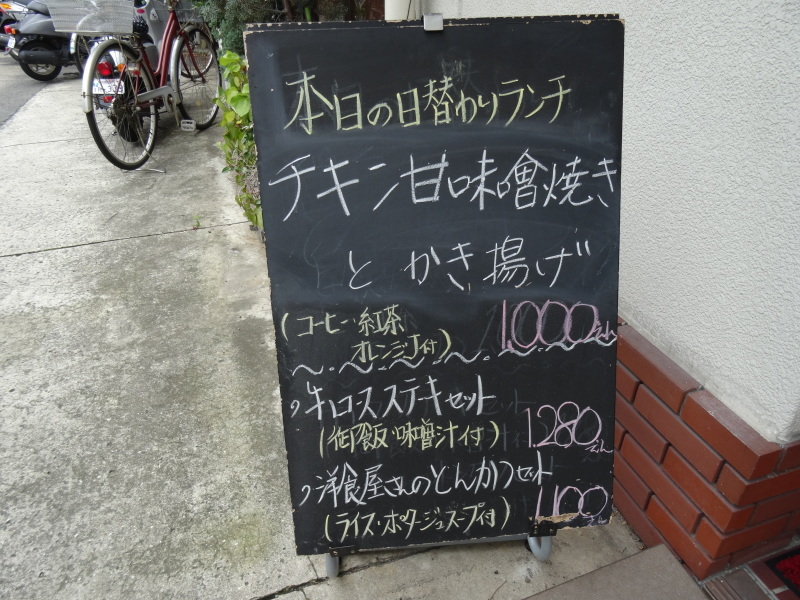 本日の日替わりランチ
チキン甘味噌焼き
とかき揚げ
(コーヒー・紅茶
オレンジJ付) 1,000えん
〃牛ロースステーキセット
(御飯・味噌汁付) 1,280えん
〃洋食屋さんのとんかつセット
(ライス・ポタージュスープ付) 1,100えん